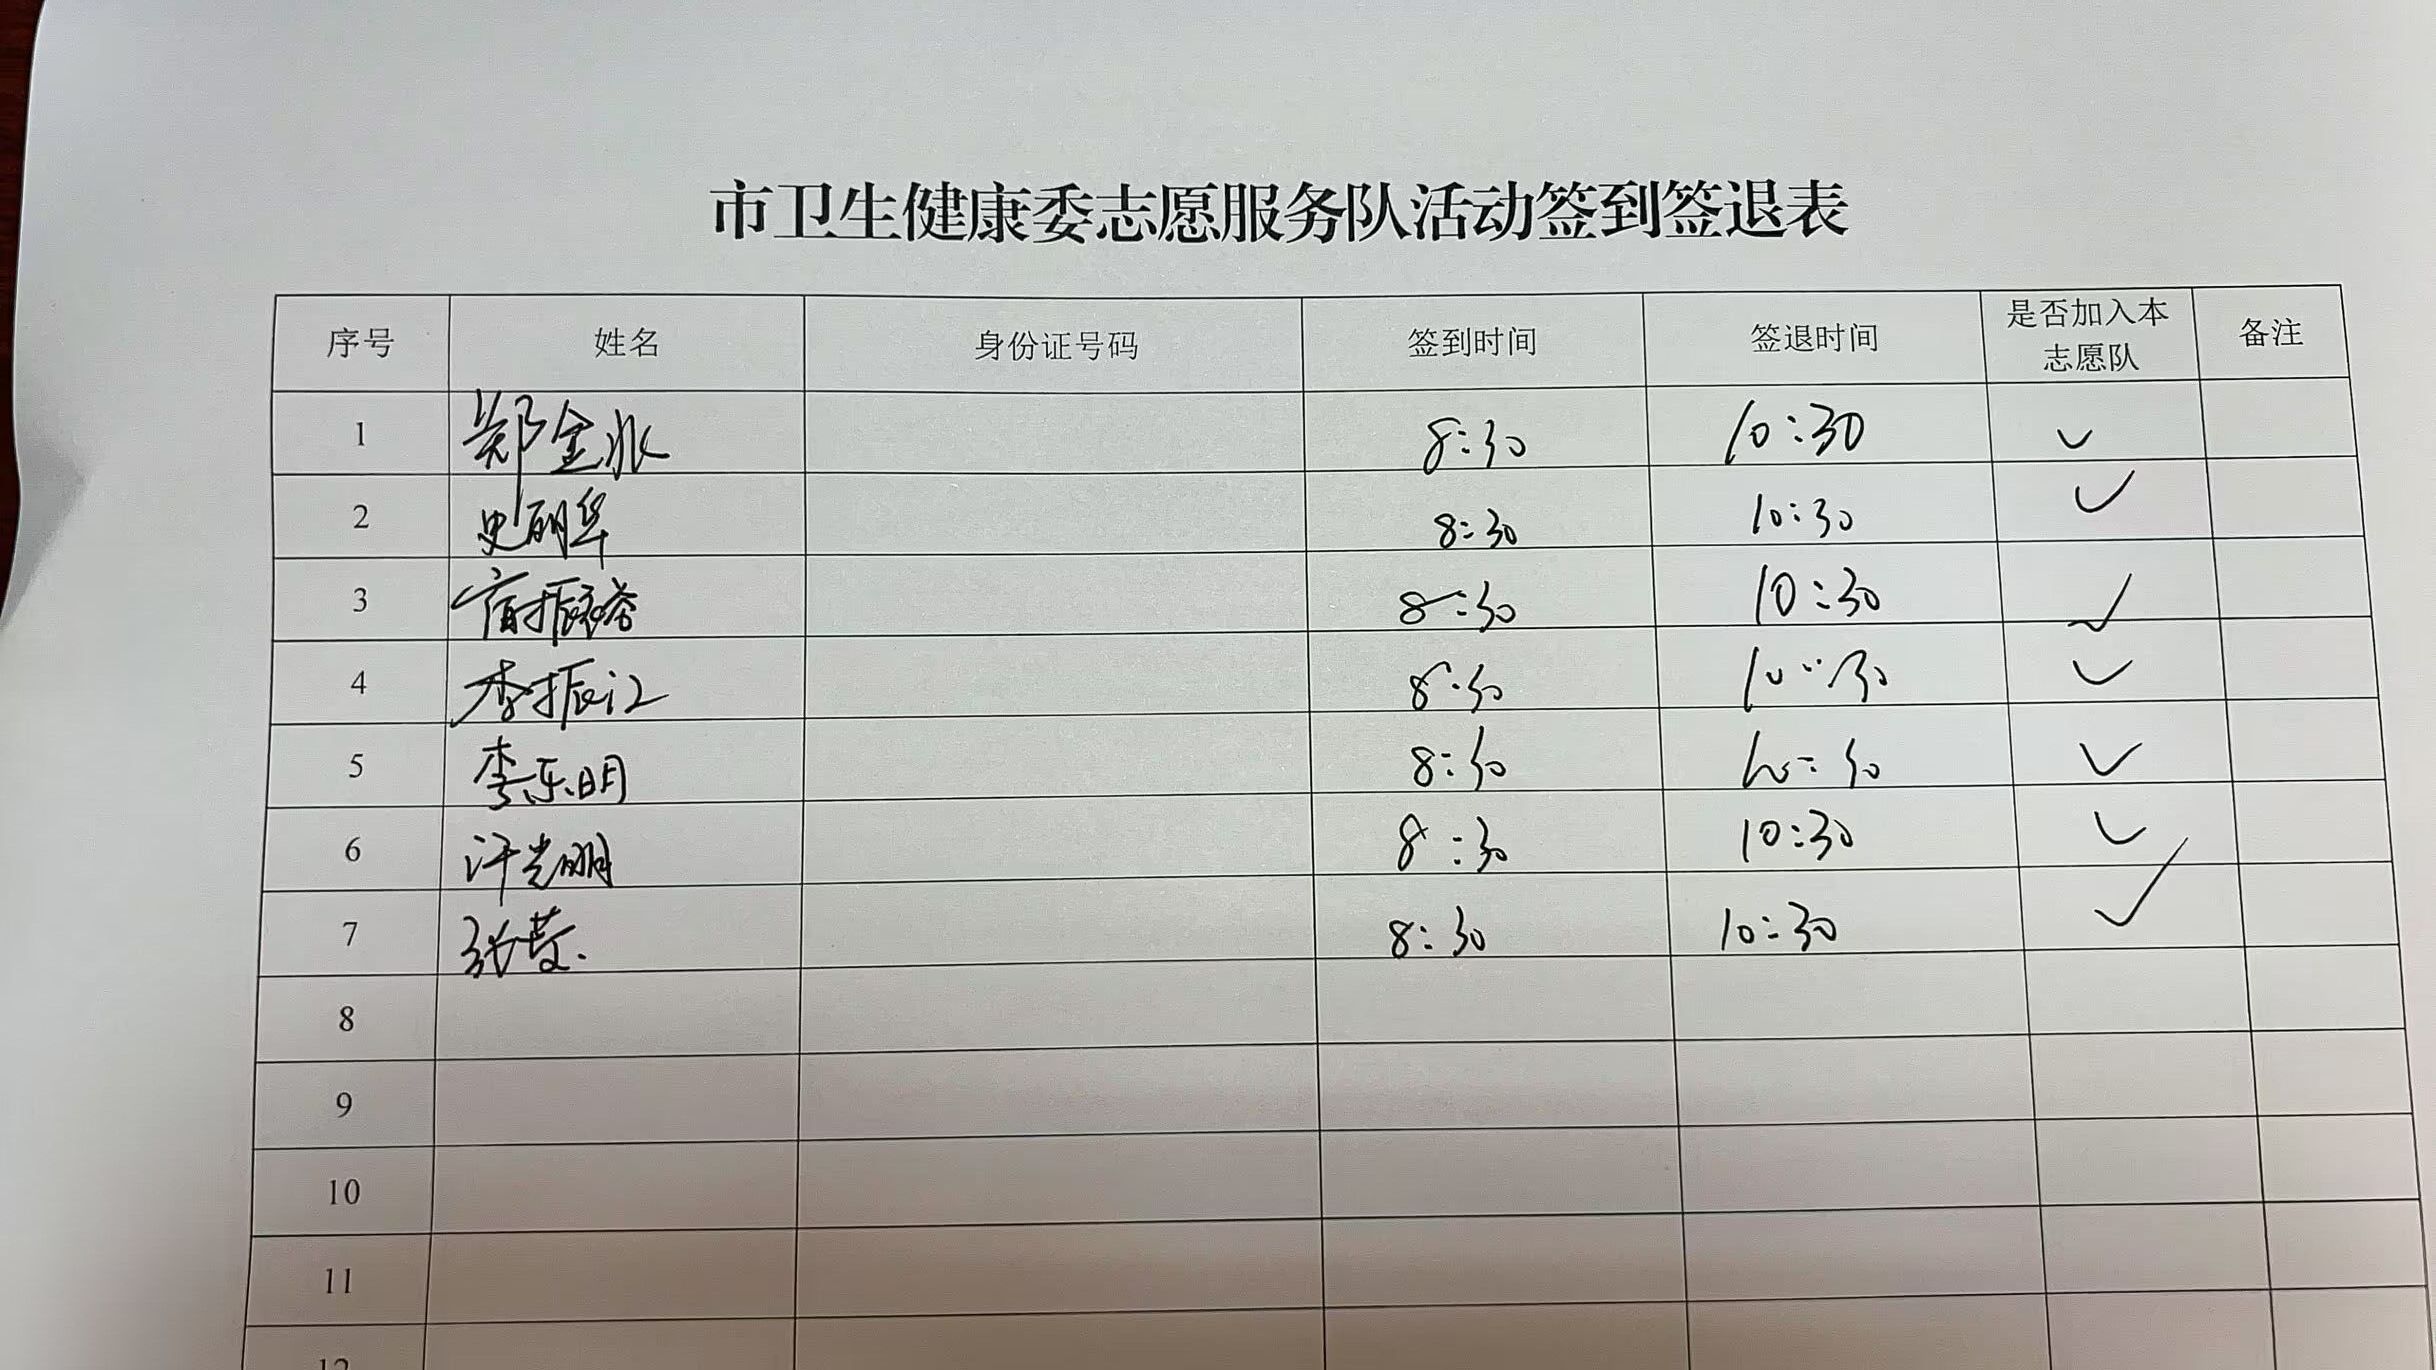 市卫生健康委志愿服务队活动签到签退表
序号 姓名 身份证号码 签到时间 签退时间 是否加入本志愿队 备注
1 郑金水 8:30 10:30 ✓
2 史丽华 8:30 10:30 ✓
3 8:30 10:30 ✓
4 李振江 8:30 10:30 ✓
5 李东明 8:30 10:30 ✓
6 汗光明 8:30 10:30 ✓
7 8:30 10:30 ✓
8
9
10
11
12